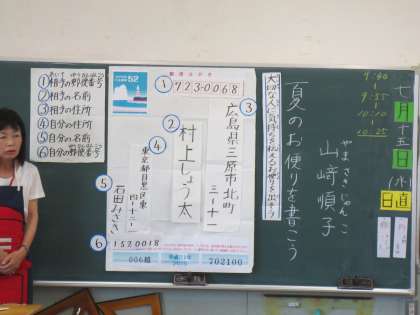 七月十五日(水)
日直
9:40
9:55
10:10
10:25
夏のお便りを書こう
やまさきじゅんこ
山﨑順子
大切な人に気持ちを伝えるお便りを出そう
52
郵便はがき
①7230068
③
広島県三原市北町
三ー十一
②
村上しょう太
④
東京都目黒区東
四ー十二ー一
⑤
石田みさき
⑥1520018
006組
702100
①相手の郵便番号
②相手の名前
③相手の住所
④自分の住所
⑤自分の名前
⑥自分の郵便番号